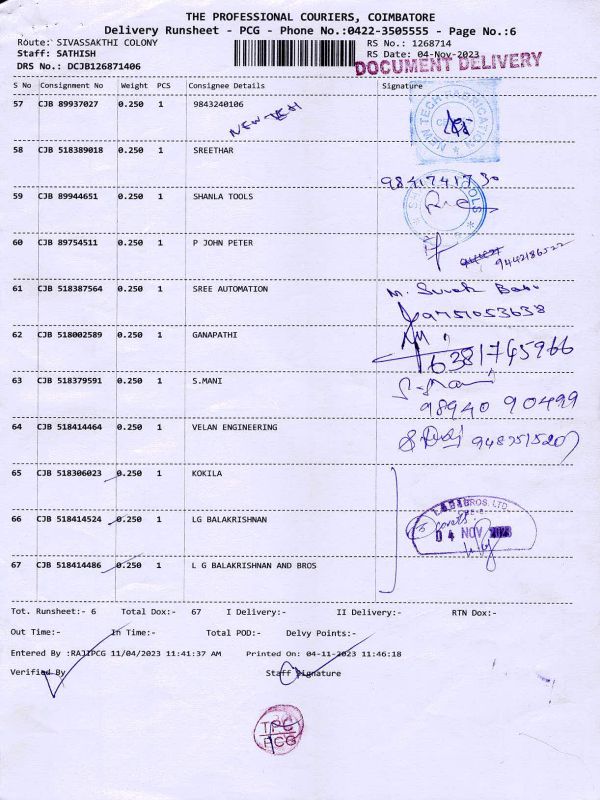 THE PROFESSIONAL COURIERS, COIMBATORE
Delivery Runsheet - PCG - Phone No.:0422-3505555 - Page No.:6
Route: SIVASSAKTHI COLONY RS No.: 1268714
Staff: SATHISH RS Date: 04-Nov-2023
DRS No.: DCJB126871406 DOCUMENT DELIVERY
S No Consignment No Weight PCS Consignee Details Signature
57 CJB 89937027 0.250 1 9843240106
NEW TECH FABRICATION
NEW TECH
58 CJB 518389018 0.250 1 SREETHAR
9841741730
59 CJB 89944651 0.250 1 SHANLA TOOLS
TOOLS
60 CJB 89754511 0.250 1 P JOHN PETER
9442186522
61 CJB 518387564 0.250 1 SREE AUTOMATION M. Suresh Babu
9751053638
62 CJB 518002589 0.250 1 GANAPATHI
6381745966
63 CJB 518379591 0.250 1 S.MANI S. Mani
98940 90499
64 CJB 518414464 0.250 1 VELAN ENGINEERING
9487515207
65 CJB 518306023 0.250 1 KOKILA
66 CJB 518414524 0.250 1 LG BALAKRISHNAN
BROS. LTD.
3 covers
04 NOV 2023
67 CJB 518414486 0.250 1 L G BALAKRISHNAN AND BROS
Tot. Runsheet:- 6 Total Dox:- 67 I Delivery:- II Delivery:- RTN Dox:-
Out Time:- In Time:- Total POD:- Delvy Points:-
Entered By :RAJIPCG 11/04/2023 11:41:37 AM Printed On: 04-11-2023 11:46:18
Verified By Staff Signature
TPC
PCG